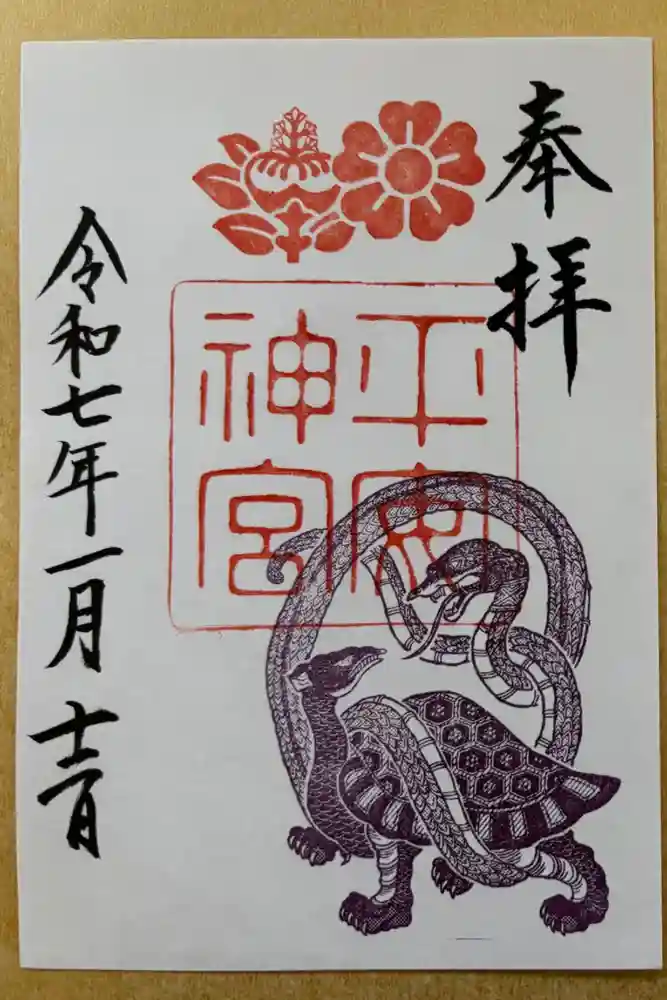 奉拝
平安
神宮
令和七年一月日